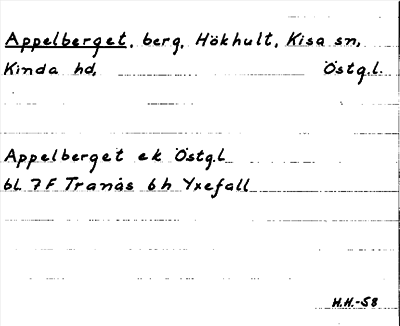 Appelberget, berg, Hökhult, Kisa sn,
Kinda hd, Östg.l.
Appelberget ek Östg.l
bl 7F Tranås 6h Yxefall
H.H.-58